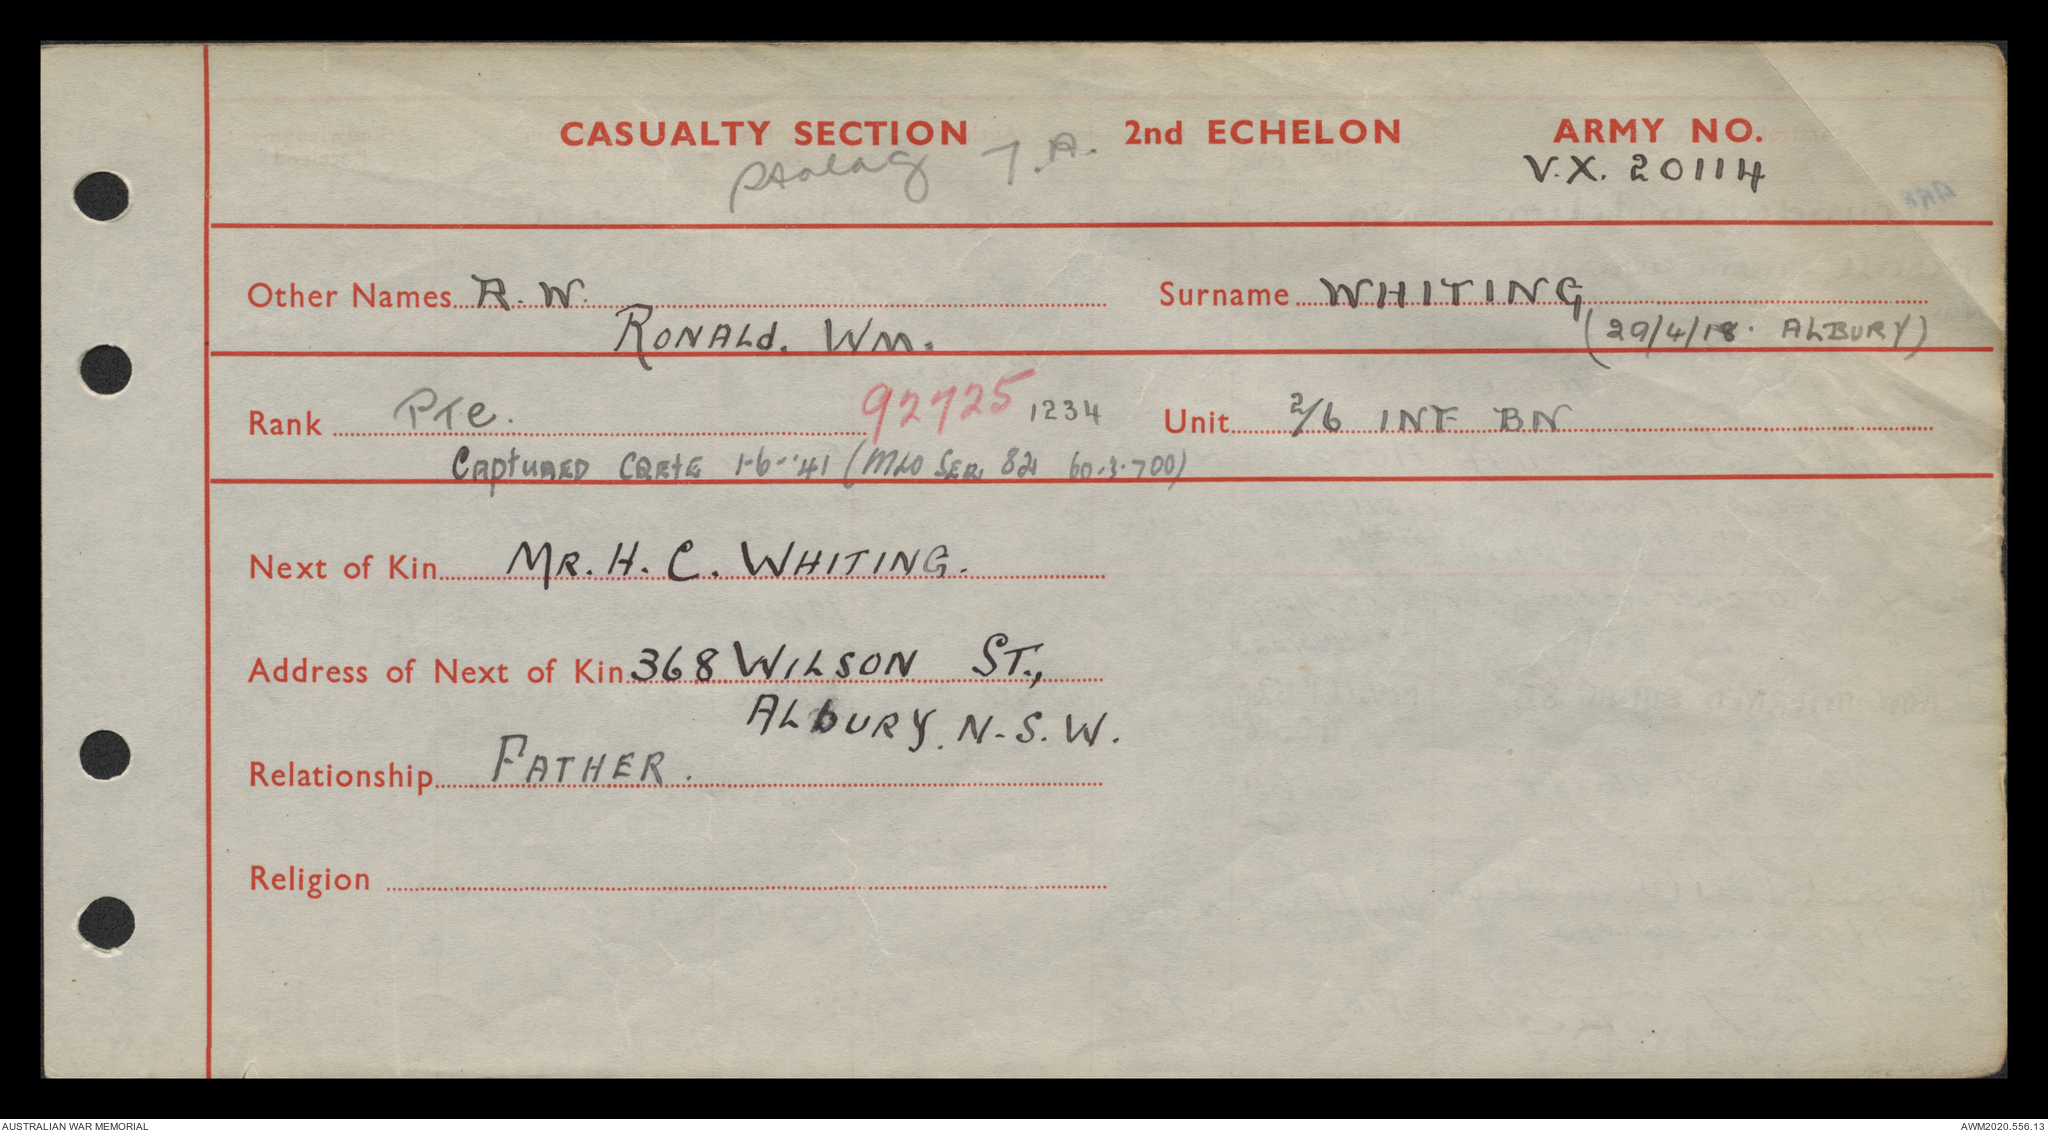 CASUALTY SECTION 2nd ECHELON ARMY NO.
Stalag 7.A. V.X. 20114
Other Names R. W. Surname WHITING
RONALd. WM. (29/4/18. ALBURY)
Rank PTe. 92725 1234 Unit 2/6 INF BN
CAptURED CRETE 1-6-'41 (MLO SER 82 60.3.700)
Next of Kin MR. H. C. WHITING.
Address of Next of Kin 368 WILSON ST.,
ALbURY. N.S.W.
Relationship FATHER.
Religion
AUSTRALIAN WAR MEMORIAL AWM2020.556.13